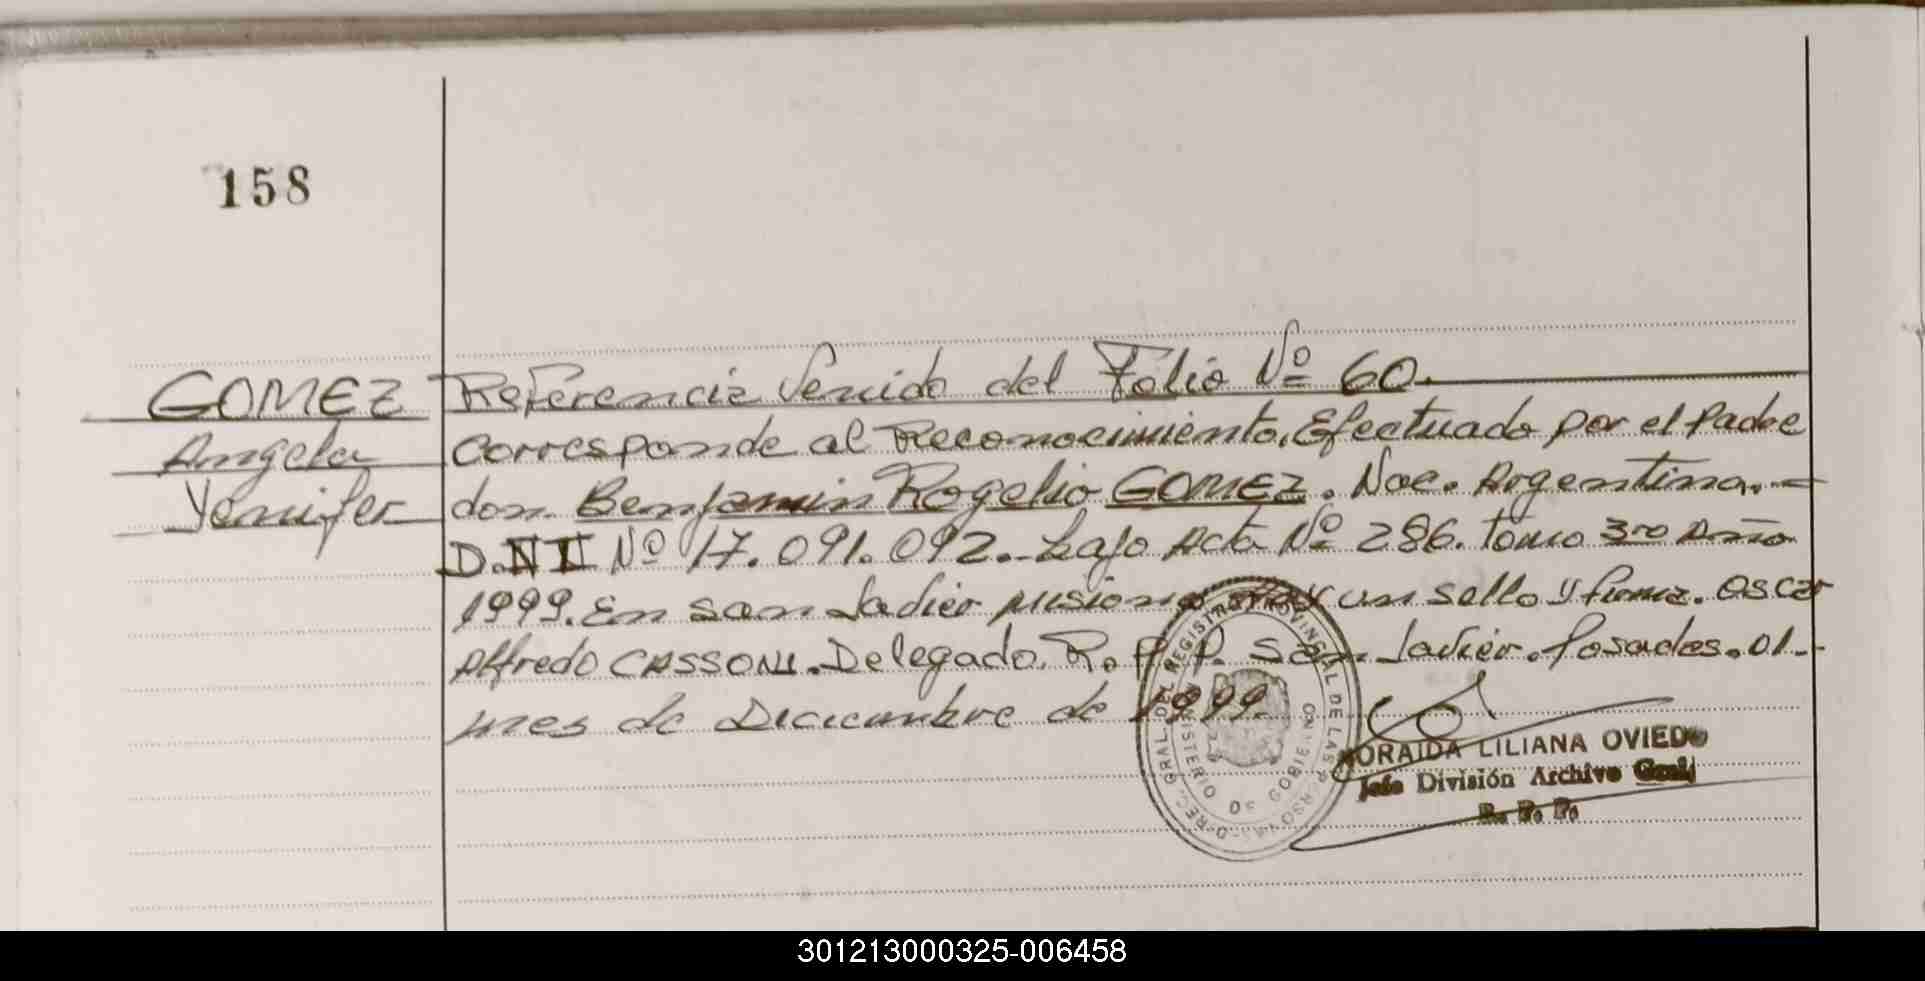 158
GOMEZ
Angela
Yenifer
Referencia Venida del Folio Nº 60.
Corresponde al Reconocimiento. Efectuado por el Padre
don Benjamin Rogelio GOMEZ. Nac. Argentina.
D.NI Nº 17.091.092. bajo Acta Nº 286. tomo 3ro Año
1999. En San Javier Misiones Hay un sello y firma. Oscar
Alfredo CASSONI. Delegado. R. P. P. San Javier. Posadas. 01.
mes de Diciembre de 1999.
REGISTRO PROVINCIAL DE LAS PERSONAS
MINISTERIO DE GOBIERNO
ORAIDA LILIANA OVIEDO
Jefe División Archivo Gral
R. P. P.
301213000325-006458